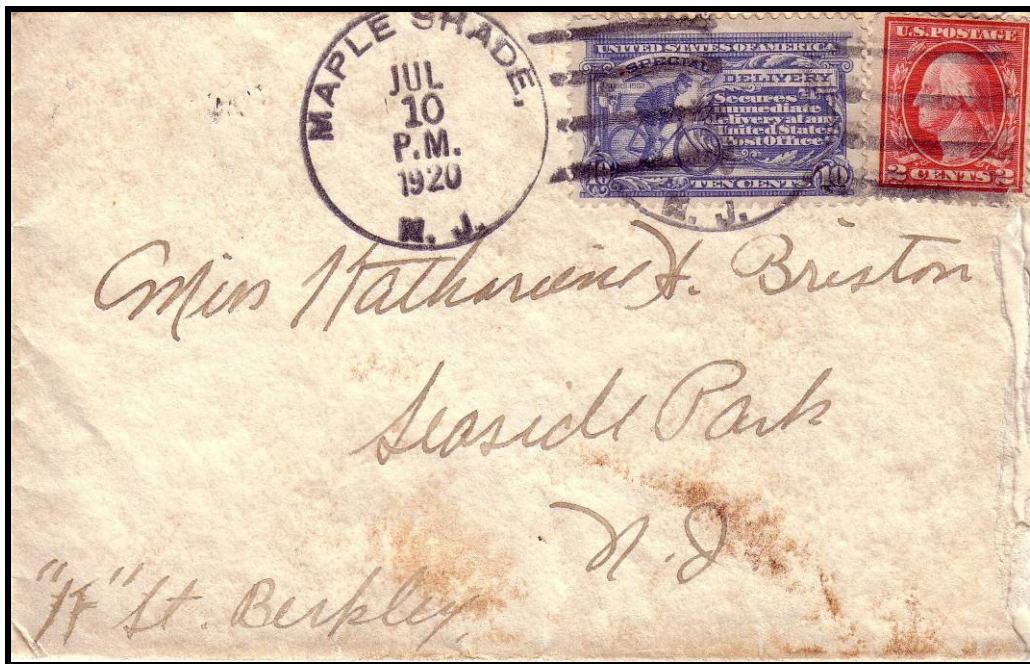 MAPLE SHADE,
JUL
10
P.M.
1920
N. J.
UNITED STATES OF AMERICA
SPECIAL
DELIVERY
Secures
immediate
delivery at any
United States
Post Office
10 TEN CENTS 10
N. J.
U.S. POSTAGE
2 CENTS 2
Miss Katharine H. Briston
Seaside Park
N. J
"H" St. Berkley,